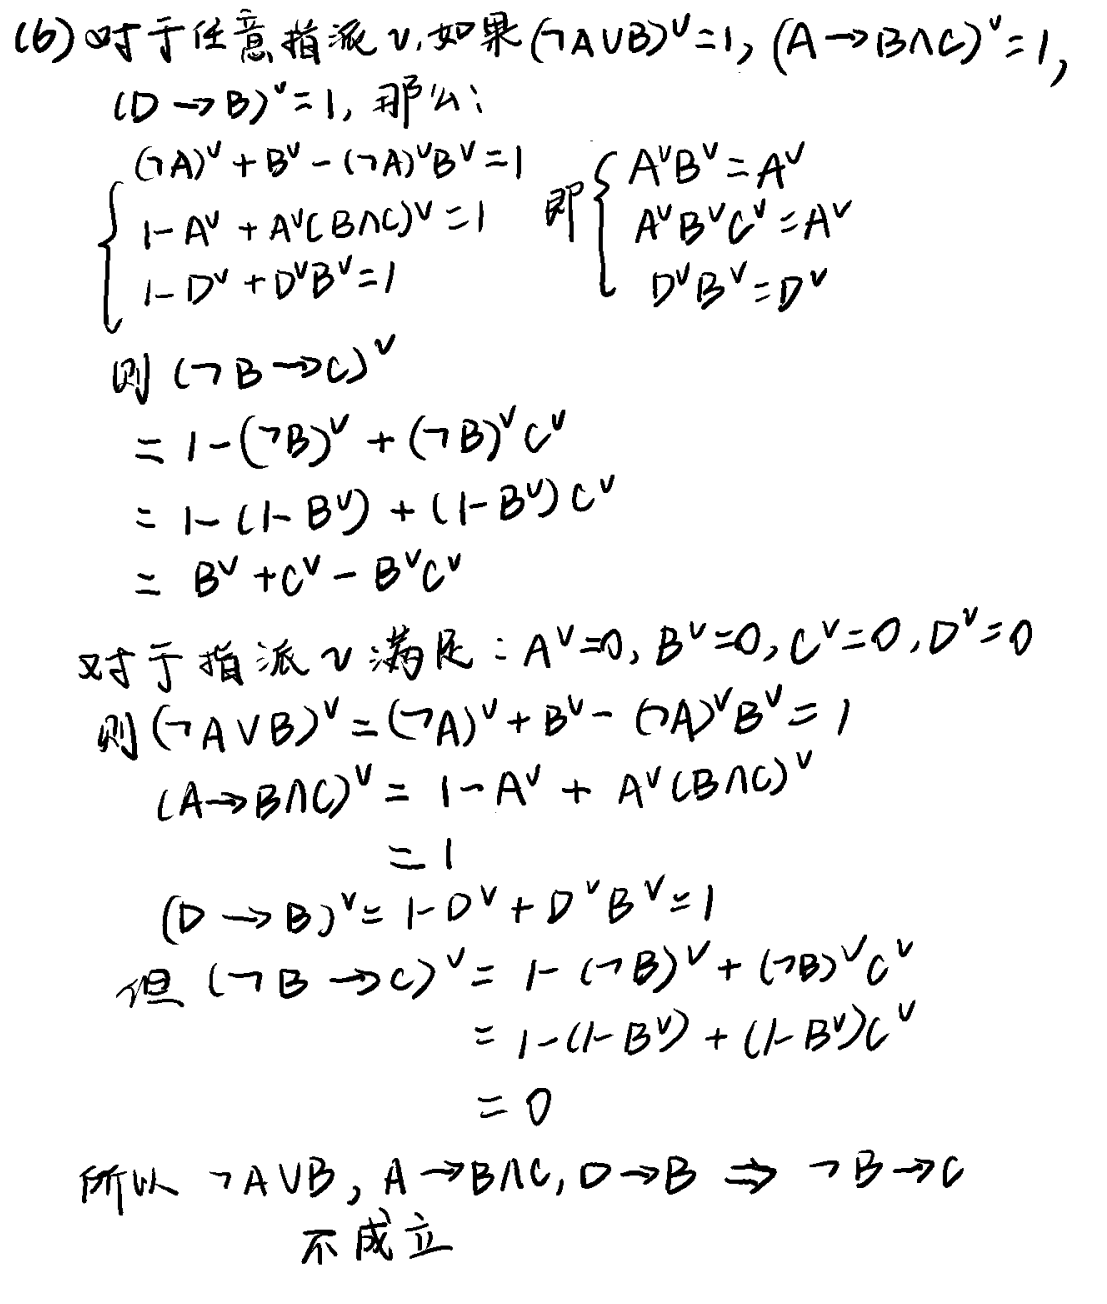 (6) 对于任意指派 v,如果(¬A∨B)ᵛ=1, (A→B∧C)ᵛ=1,
(D→B)ᵛ=1, 那么:
(¬A)ᵛ+Bᵛ-(¬A)ᵛBᵛ=1 即 AᵛBᵛ=Aᵛ
1-Aᵛ+Aᵛ(B∧C)ᵛ=1 AᵛBᵛCᵛ=Aᵛ
1-Dᵛ+DᵛBᵛ=1 DᵛBᵛ=Dᵛ
则 (¬B→C)ᵛ
= 1-(¬B)ᵛ+(¬B)ᵛCᵛ
= 1-(1-Bᵛ)+(1-Bᵛ)Cᵛ
= Bᵛ+Cᵛ-BᵛCᵛ
对于指派 v 满足:Aᵛ=0, Bᵛ=0, Cᵛ=0, Dᵛ=0
则 (¬A∨B)ᵛ=(¬A)ᵛ+Bᵛ-(¬A)ᵛBᵛ=1
(A→B∧C)ᵛ= 1-Aᵛ+Aᵛ(B∧C)ᵛ
=1
(D→B)ᵛ=1-Dᵛ+DᵛBᵛ=1
但 (¬B→C)ᵛ= 1-(¬B)ᵛ+(¬B)ᵛCᵛ
= 1-(1-Bᵛ)+(1-Bᵛ)Cᵛ
= 0
所以 ¬A∨B, A→B∧C, D→B ⇒ ¬B→C
不成立